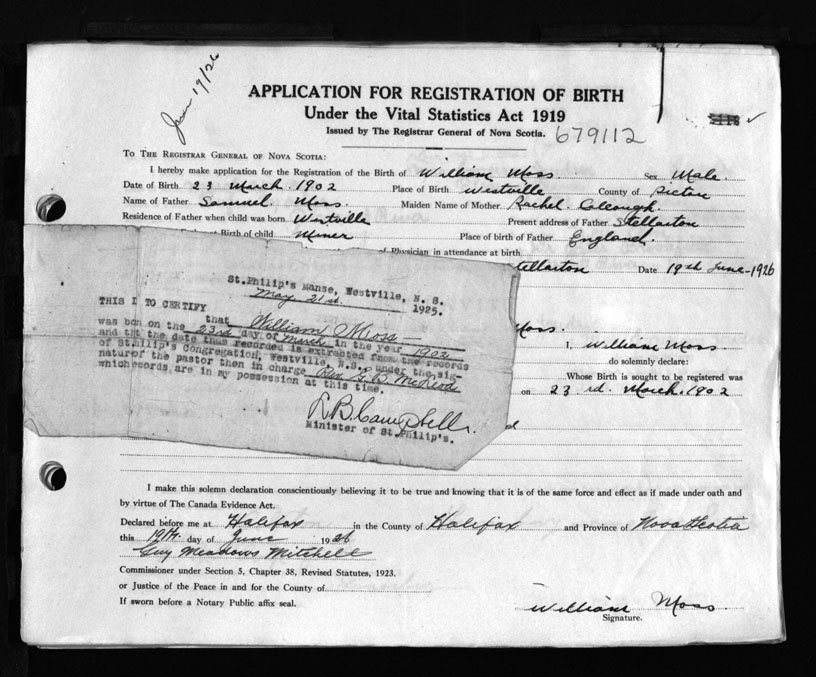 June 19/26
APPLICATION FOR REGISTRATION OF BIRTH
Under the Vital Statistics Act 1919
Issued by The Registrar General of Nova Scotia.
679112
TO THE REGISTRAR GENERAL OF NOVA SCOTIA:
I hereby make application for the Registration of the Birth of William Moss Sex Male.
Date of Birth 23 March. 1902 Place of Birth Westville County of Pictou
Name of Father Samuel Moss. Maiden Name of Mother Rachel
Residence of Father when child was born Westville Present address of Father Stellarton
Birth of child Miner Place of birth of Father England.
of Physician in attendance at birth
tellarton Date 19th June-1926
St.Philip's Manse, Westville, N. S.
May 21st. 1925.
THIS I TO CERTIFY
that William Moss
was bon on the 23rd day of March in the year 1902
and tht the date thus recorded is extracted from the records
of St.hilip's Congregation, Westville, N.S., under the sig-
natur of the pastor then in charge Rev. G. D. McLeod
which cords are in my possession at this time.
L B Campbell.
Minister of St.Philip's.
Moss.
I, William Moss
do solemnly declare:
Whose Birth is sought to be registered was
on 23rd. March. 1902
d
I make this solemn declaration conscientiously believing it to be true and knowing that it is of the same force and effect as if made under oath and
by virtue of The Canada Evidence Act.
Declared before me at Halifax in the County of Halifax and Province of Nova Scotia
this 19th. day of June 1926
Guy Meadows Mitchell
Commissioner under Section 5, Chapter 38, Revised Statutes, 1923.
or Justice of the Peace in and for the County of
If sworn before a Notary Public affix seal.
William Moss.
Signature.